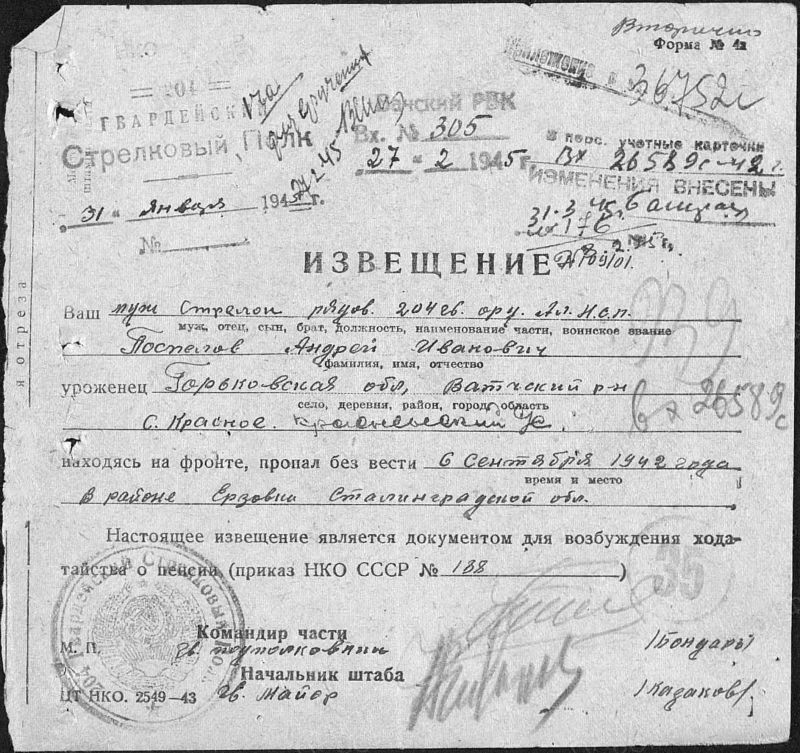 Вторично
Форма № 4а
Приложение
36752и
204
ГВАРДЕЙСКИЙ
Стрелковый Полк
31 " января 1945 г.
№
для вручения
27 2 45
Вачский РВК
Вх. № 305
27 " 2 1945 г.
В перс. учетные карточки
Вх 26589с-42 г.
ИЗМЕНЕНИЯ ВНЕСЕНЫ
31.3
ИЗВЕЩЕНИЕ
Ваш муж Стрелок рядов. 204 гв.
муж, отец, сын, брат, должность, наименование части, воинское звание
Поспелов Андрей Иванович
фамилия, имя, отчество
уроженец Горьковская обл, Вачский р-н
село, деревня, район, город, область
с. Красное.
вх 26589с
находясь на фронте, пропал без вести 6 сентября 1942 года
время и место
в районе Ерзовки Сталинградской обл.
Настоящее извещение является документом для возбуждения хода-
тайства о пенсии (приказ НКО СССР № 188)
35
Командир части
М. П. Гв. подполковник /Бондарь/
Начальник штаба
ЦТ НКО. 2549—43 Гв. Майор /Казаков/
204 Гвардейский Стрелковый Полк
я отреза